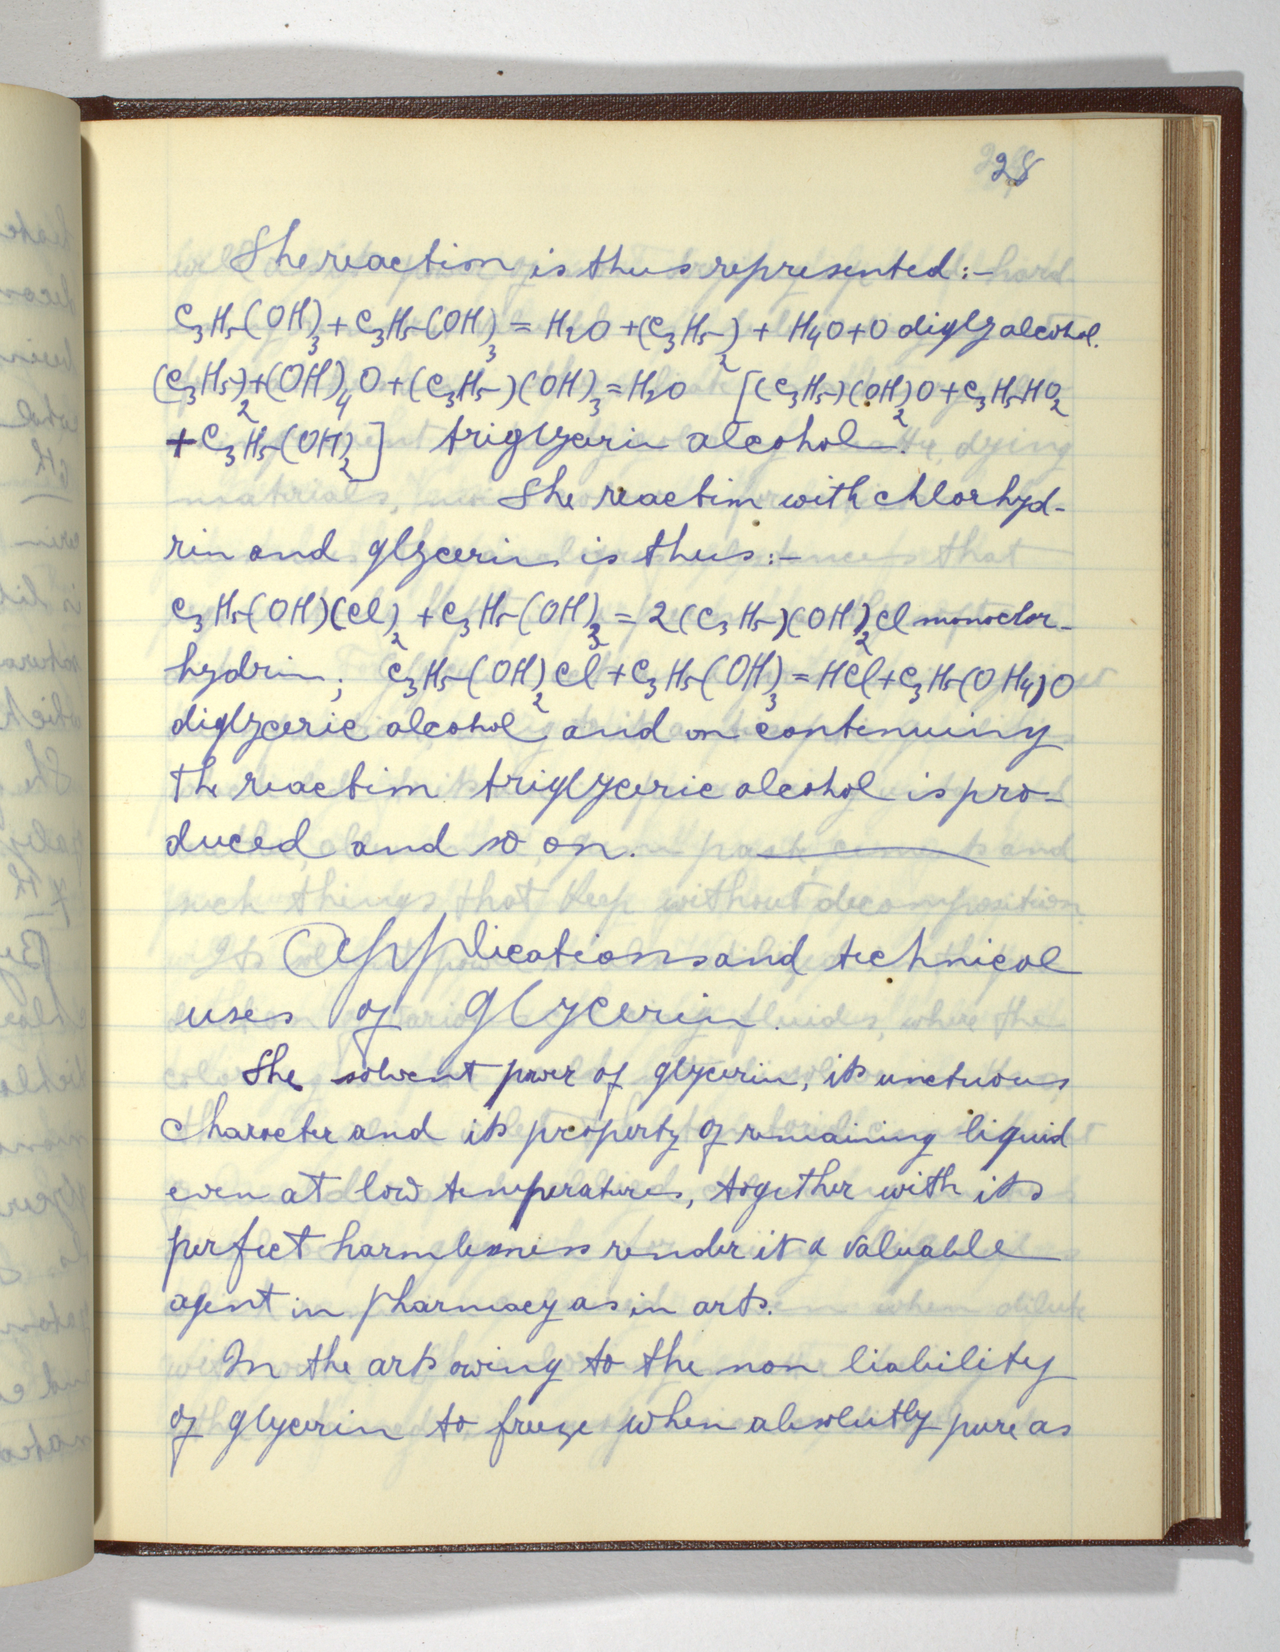 28
The reaction is thus represented:-
C₃H₅(OH)₃ + C₃H₅(OH)₃ = H₂O + (C₃H₅)₂ + H₄O + O diglyalcohol.
(C₃H₅)₂ + (OH)₄O + (C₃H₅)(OH)₃ = H₂O [(C₃H₅)(OH)₂O + C₃H₅HO₂
+ C₃H₅(OH)₂] triglycerin alcohol.
The reaction with chlorhyd-
rin and glycerin is thus:-
C₃H₅(OH)(Cl)₂ + C₃H₅(OH)₃ = 2(C₃H₅)(OH)₂Cl monoclor-
hydrin; C₃H₅(OH)₂Cl + C₃H₅(OH)₃ = HCl + C₃H₅(OH₄)O
diglyceric alcohol, and on contenuing
the reaction triglyceric alcohol is pro-
duced and so on.
Applications and technical
uses of glycerin.
The solvent power of glycerin, its unctuous
character and its property of remaining liquid
even at low temperatures, together with its
perfect harmlessness render it a valuable
agent in pharmacy as in arts.
In the arts owing to the non liability
of glycerin to freeze when absolutly pure as